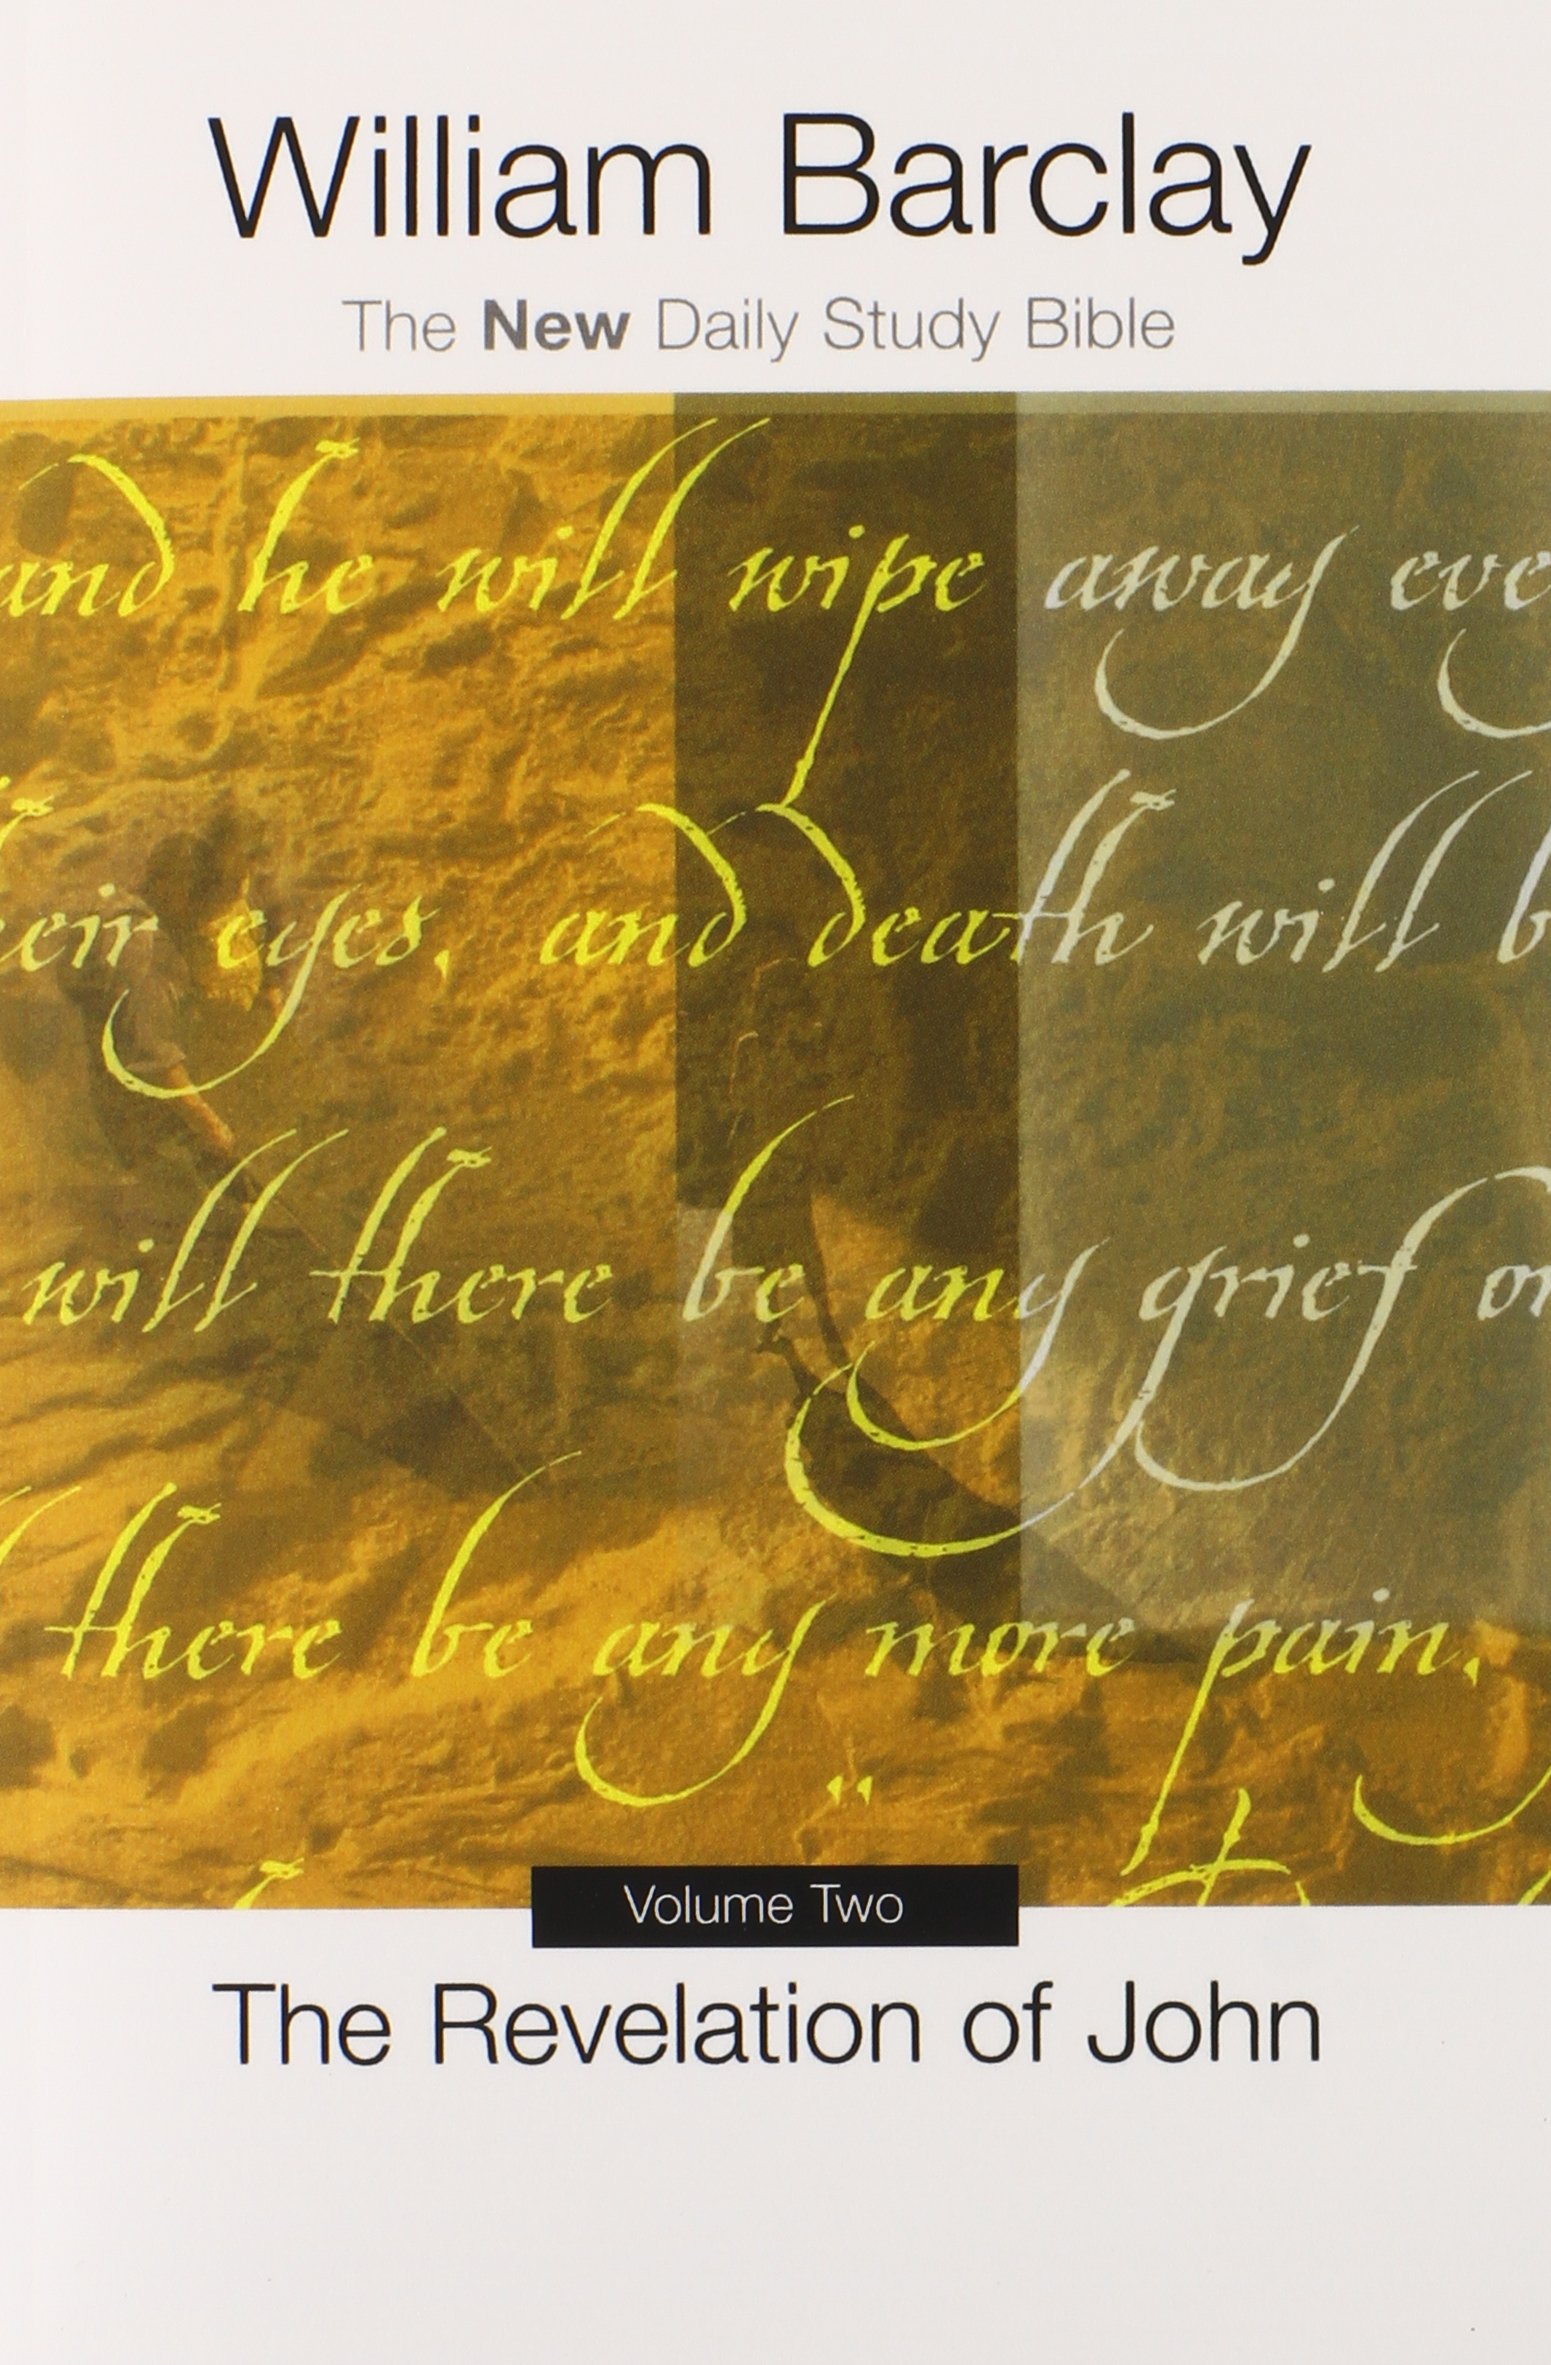 William Barclay
The New Daily Study Bible
and he will wipe away
eyes, and death will
will there be any grief
there be any more pain,
Volume Two
The Revelation of John